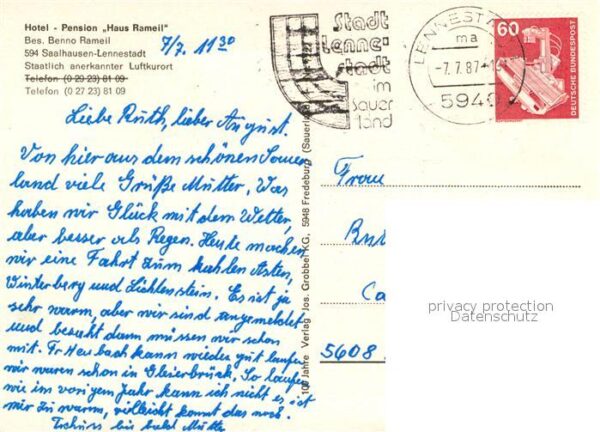 Hotel - Pension „Haus Rameil"
Bes. Benno Rameil
594 Saalhausen-Lennestadt
Staatlich anerkannter Luftkurort
Telefon (0 29 23) 81 09
Telefon (0 27 23) 81 09
7/7. 11 30
Stadt
Lenne-
stadt
im
Sauer
land
LENNESTADT
ma
-7.7.87
5940
60
DEUTSCHE BUNDESPOST
Liebe Ruth, lieber August.
Von hier aus dem schönen Sauer
land viele Grüße Mutter, Was
haben wir Glück mit dem Wetter,
aber besser als Regen. Heute machen
wir eine Fahrt zum kahlen Asten,
Winterberg und Lichtenstein. Es ist ja
sehr warm, aber wir sind angemeldet
und bezahlt dann müssen wir schon
mit. Fr Heubach kann wieder gut laufen
wir waren schon in Gleierbrück. So laufen
wie im vorigem Jahr kann ich nicht es ist
mir zu warm, vielleicht kommt das noch.
Tschüss bis bald Mutter
100 Jahre Verlag Jos. Grobbel KG, 5948 Fredeburg (Sauerland)
Frau
5608
privacy protection
Datenschutz